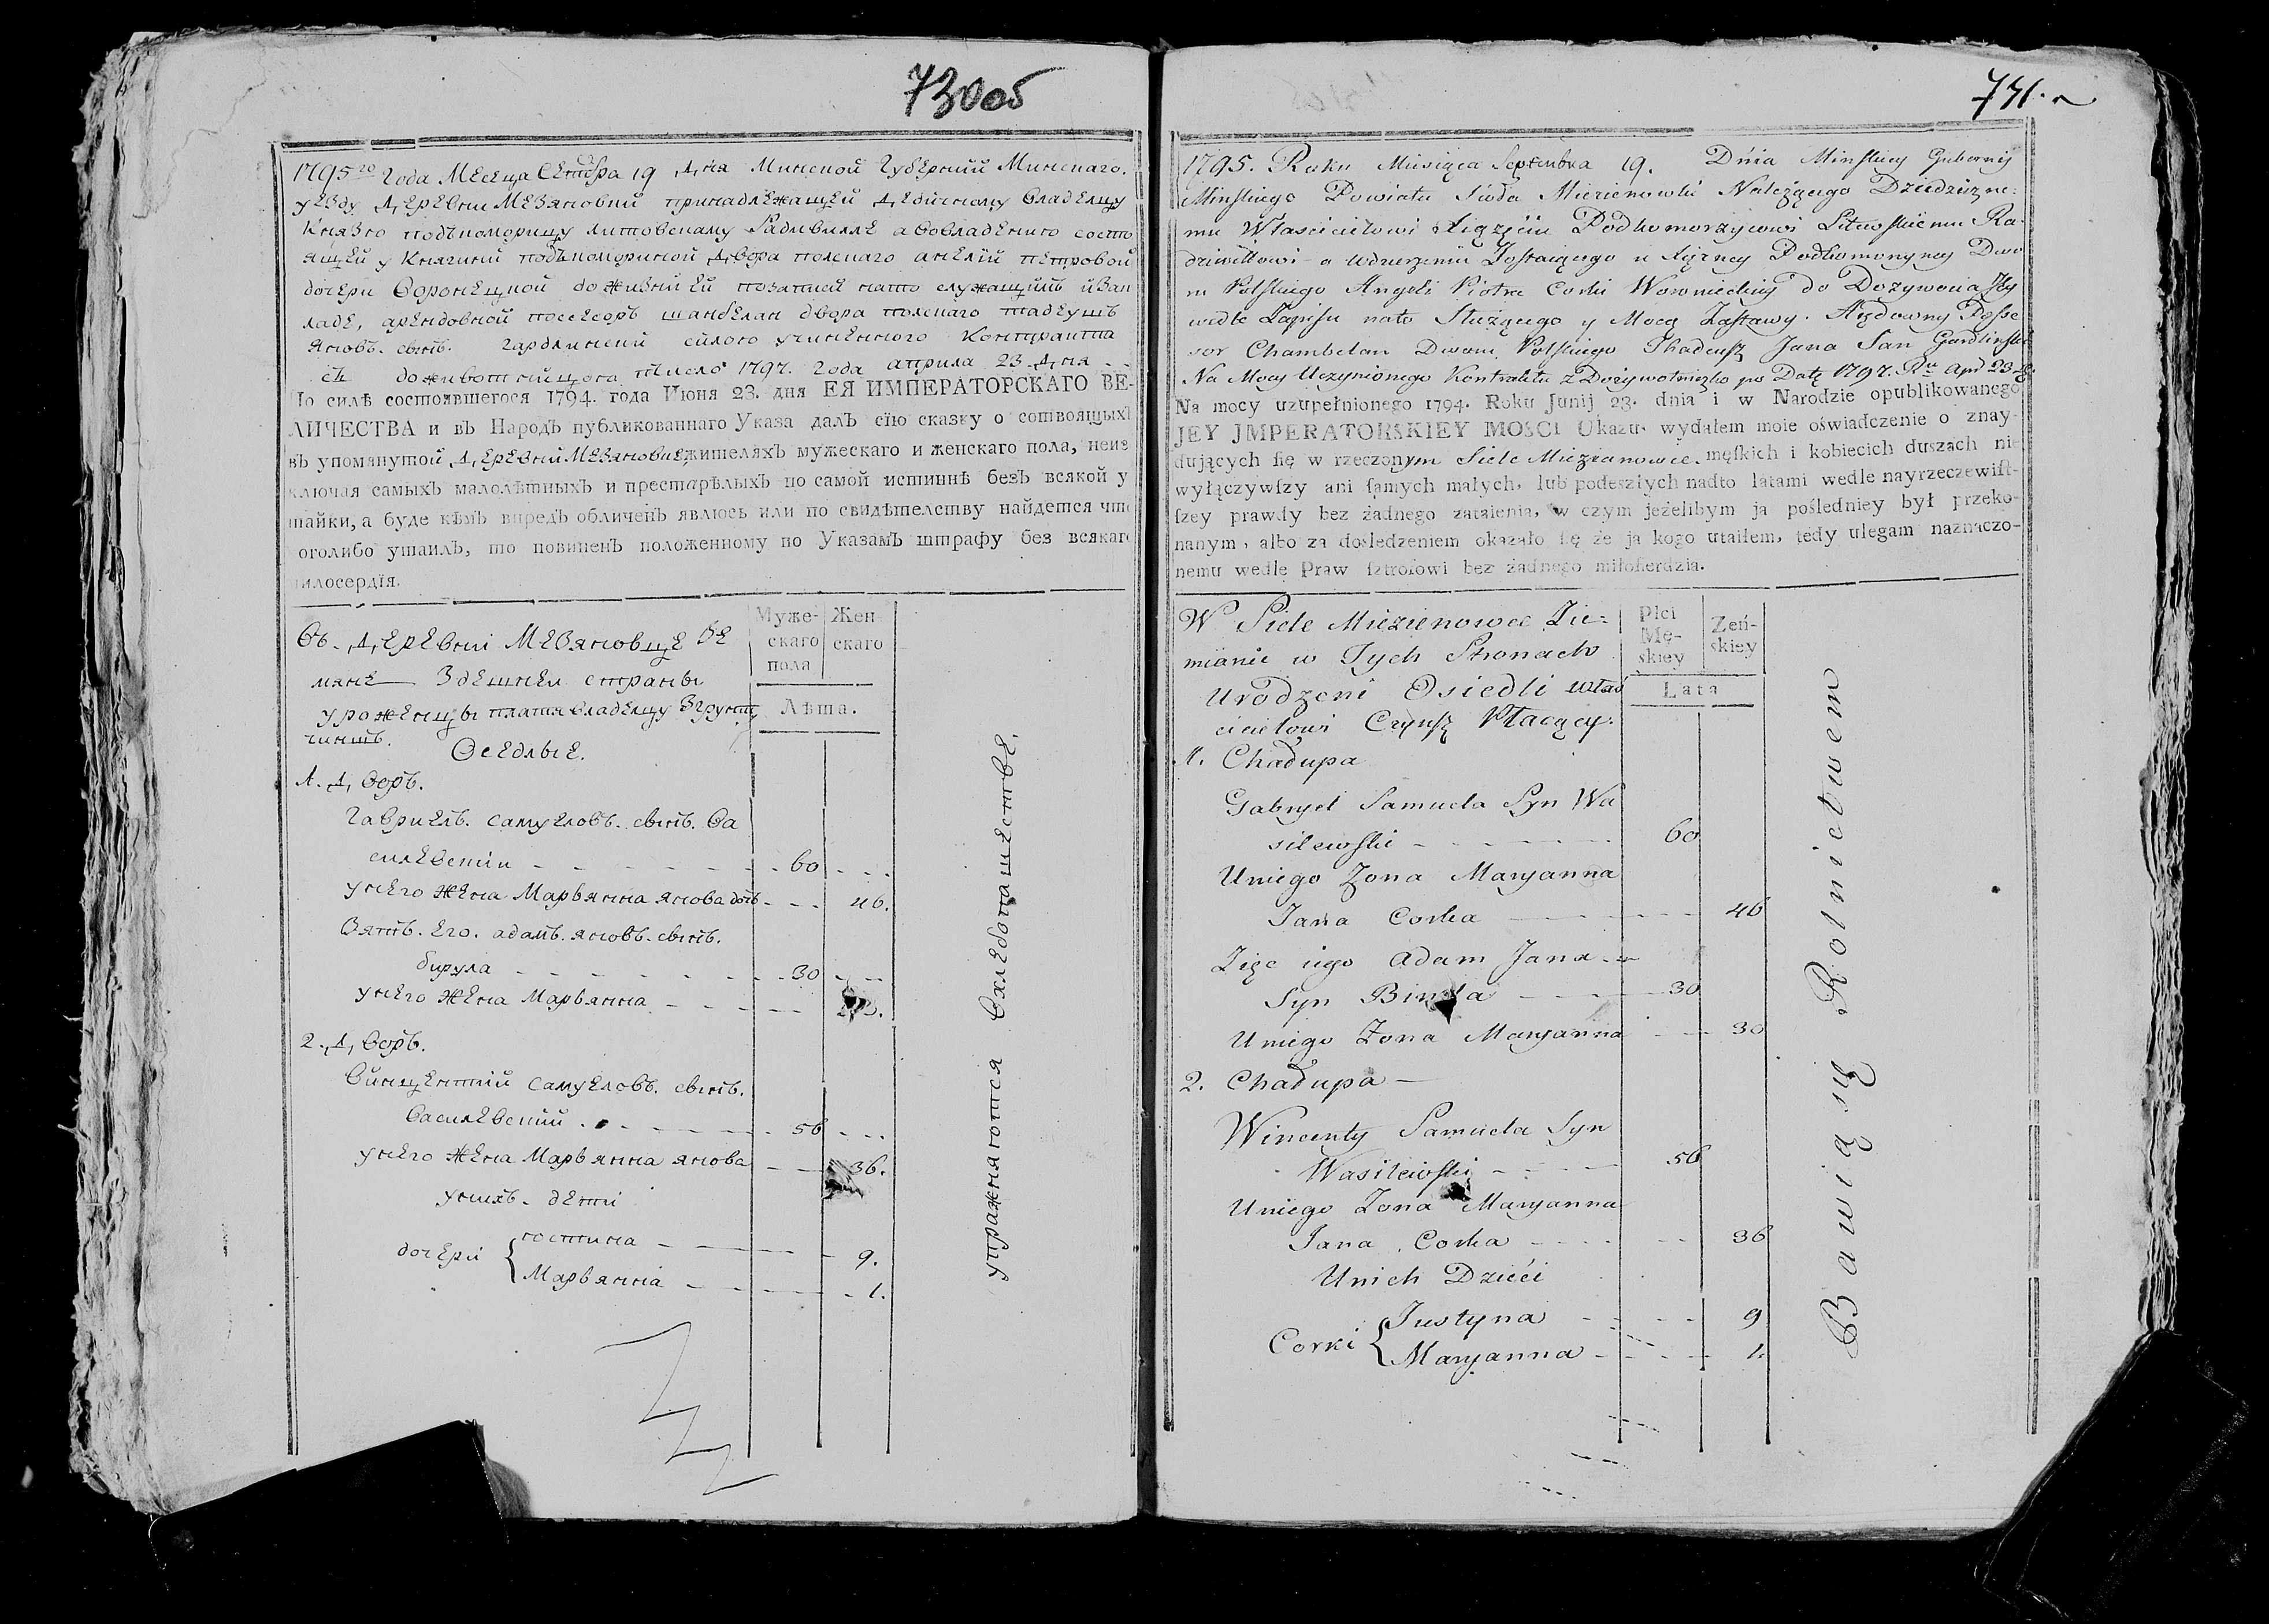 730об
1795го Года Месеца Сентебра 19 Дня Минской Губернии Минскаго
уезду Деревни Мезяновки принадлежащей Дедичному Владелцу
Князю подъкоморищу литовскому Радивилле а Вовладению состо
ящей у Княгини подъкомориной Двора полскаго анелии петровой
дочери Воронецкой
ладе, арендовной посесоръ шанбелан двора полскаго тадеушъ
яновъ. сынъ. Гардлински силою учиненного Контракта
1797. Года априла 23 Дня
По силѣ состоявшегося 1794. года Июня 23. дня ЕЯ ИМПЕРАТОРСКАГО ВЕ-
ЛИЧЕСТВА и въ Народъ публикованнаго Указа далъ сїю сказку о сотвоящыхъ
въ упомянутой Деревни Мезяновке, жителяхъ мужескаго и женскаго пола, неиз
ключая самыхъ малолѣтныхъ и престарѣлыхъ по самой истиннѣ безъ всякой у
тайки, а буде кѣмъ впредь обличенъ явлюсь или по свидѣтелству найдется что
оголибо утаилъ, то повиненъ положенному по Указамъ штрафу без всякаго
милосердїя.
Муже-
скаго
пола
Жен
скаго
Лѣта.
Въ. Деревни Мезяновце Зе
мяне Здешнея страны
уроженцы платя владелцу Згрунту
чиншъ.
Оседлые.
1. Дворъ.
Гавриелъ. самуеловъ. сынъ. Ва
силевский 60
у него жена Марьянна янова дочь 46.
Зять. его. адамъ. яновъ. сынъ.
бирула 30
у него жена Марьянна
2. Дворъ.
Винцентий самуеловъ. сынъ.
Василевский 56
у него жена Марьянна янова 36.
у нихъ. дети
дочери
юстина 9.
Марьянна 1.
упражняются Вхлебопашестве.
731.
1795. Roku Miesiąca Septembra 19. Dnia Minskiey Gubernij
Minskiego Powiatu Sioła Miezienowki Należącego Dziedziczne:
mu Włascicielowi Xiązęciu Podkomorzycowi Litewskiemu Ra-
dziwiłłowi a wdzierzeniu Zostaiącego u Xięzney Podkomorzyney Dwo
ru Polskiego Angeli Piotra Corki Woronieckiey do Dozywocia Jey
wedle Zapisu nato Słuzącego y Mocą Zastawy. Aędowny Posse
sor Chambelan Dworu Polskiego Thadeusz Jana San Gardlinski
Na Mocy Uczynionego Kontraktu z Dożywotniczką po Datę 1797. Ru Apr 23 d
Na mocy uzupełnionego 1794. Roku Junij 23. dnia i w Narodzie opublikowanego
JEY JMPERATORSKIEY MOŚCI Ukazu wydałem moie oświadczenie o znay-
dujących się w rzeczonym Siele Miezianowce. męskich i kobiecich duszach nie
wyłączywszy ani samych małych, lub podeszłych nadto latami wedle nayrzeczewist-
szey prawdy bez żadnego zataienia, w czym jeżelibym ja posledniey był przeko-
nanym, albo za dośledzeniem okazało się że ja kogo utaiłem, tedy ulegam naznaczo-
nemu wedle Praw sztrofowi bez żadnego miłosierdzia.
Płci
Mę-
skiey
Zeń-
skiey
Lata
W Siele Miezienowce Zie:
mianie w Tych Stronach
Urodzeni Osiedli właś
cicielowi Czynsz Płacący.
1. Chałupa
Gabryel Samuela Syn Wa
silewski 60
Uniego Zona Maryanna
Jana Corka 46
Zięc iego Adam Jana
Syn Birula 30
Uniego Zona Maryanna 30
2. Chałupa
Wincenty Samuela Syn
Wasilewski 56
Uniego Zona Maryanna
Jana Corka 36
Unich Dzieći
Corki
Justyna 9
Maryanna 1.
Bawią się Rolnictwem